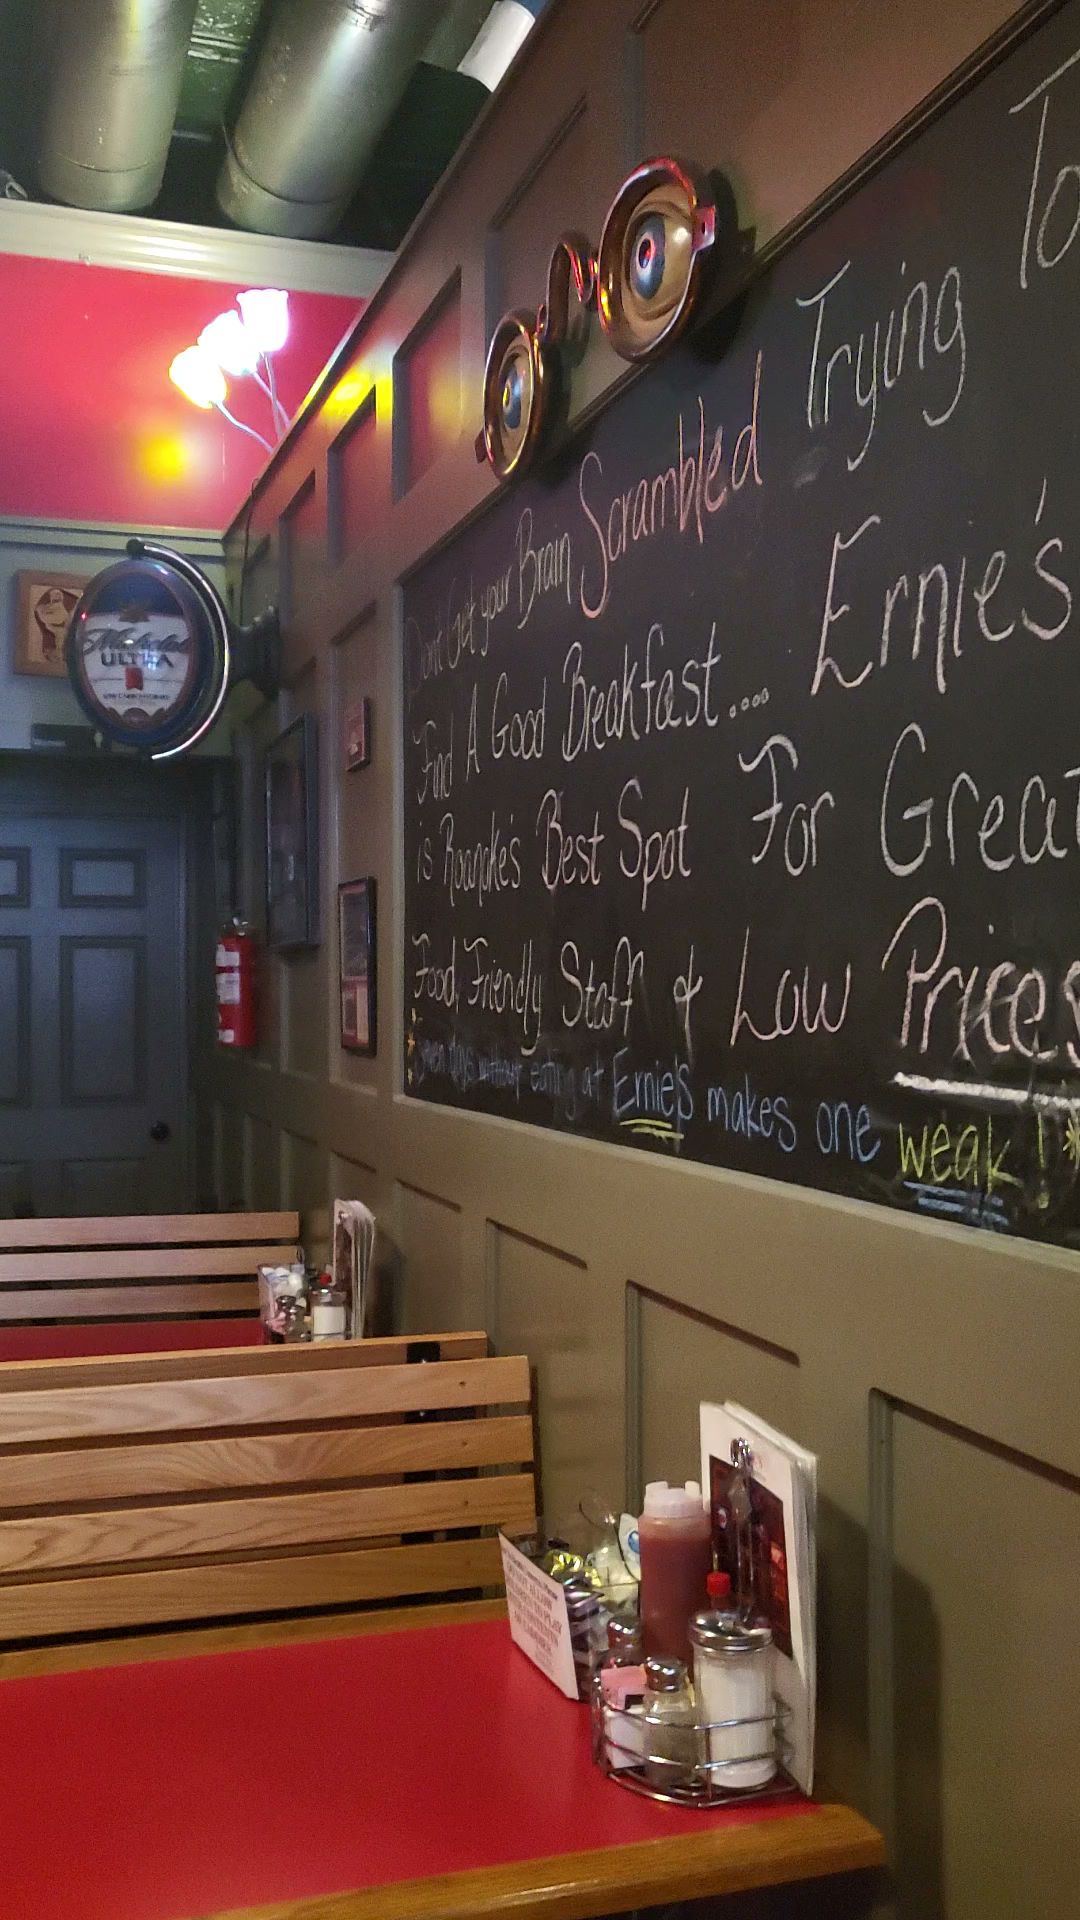 Don't Get your Brain Scrambled Trying To
Find A Good Breakfast.... Ernie's
is Roanoke's Best Spot For Great
Food, Friendly Staff & Low Prices
*seven days without eating at Ernie's makes one weak!*
Michelob
ULTRA